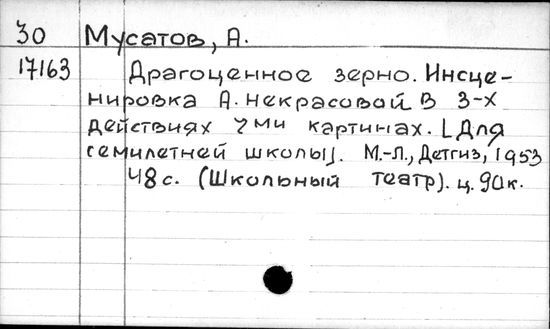 30 Мусатов, А.
17163 Драгоценное зерно. Инсце-
нировка А. Некрасовой в 3-х
действиях 7ми картинах. [Для
семилетней школы]. М.-Л., Детгиз, 1953
48 с. (Школьный театр). ц. 90к.